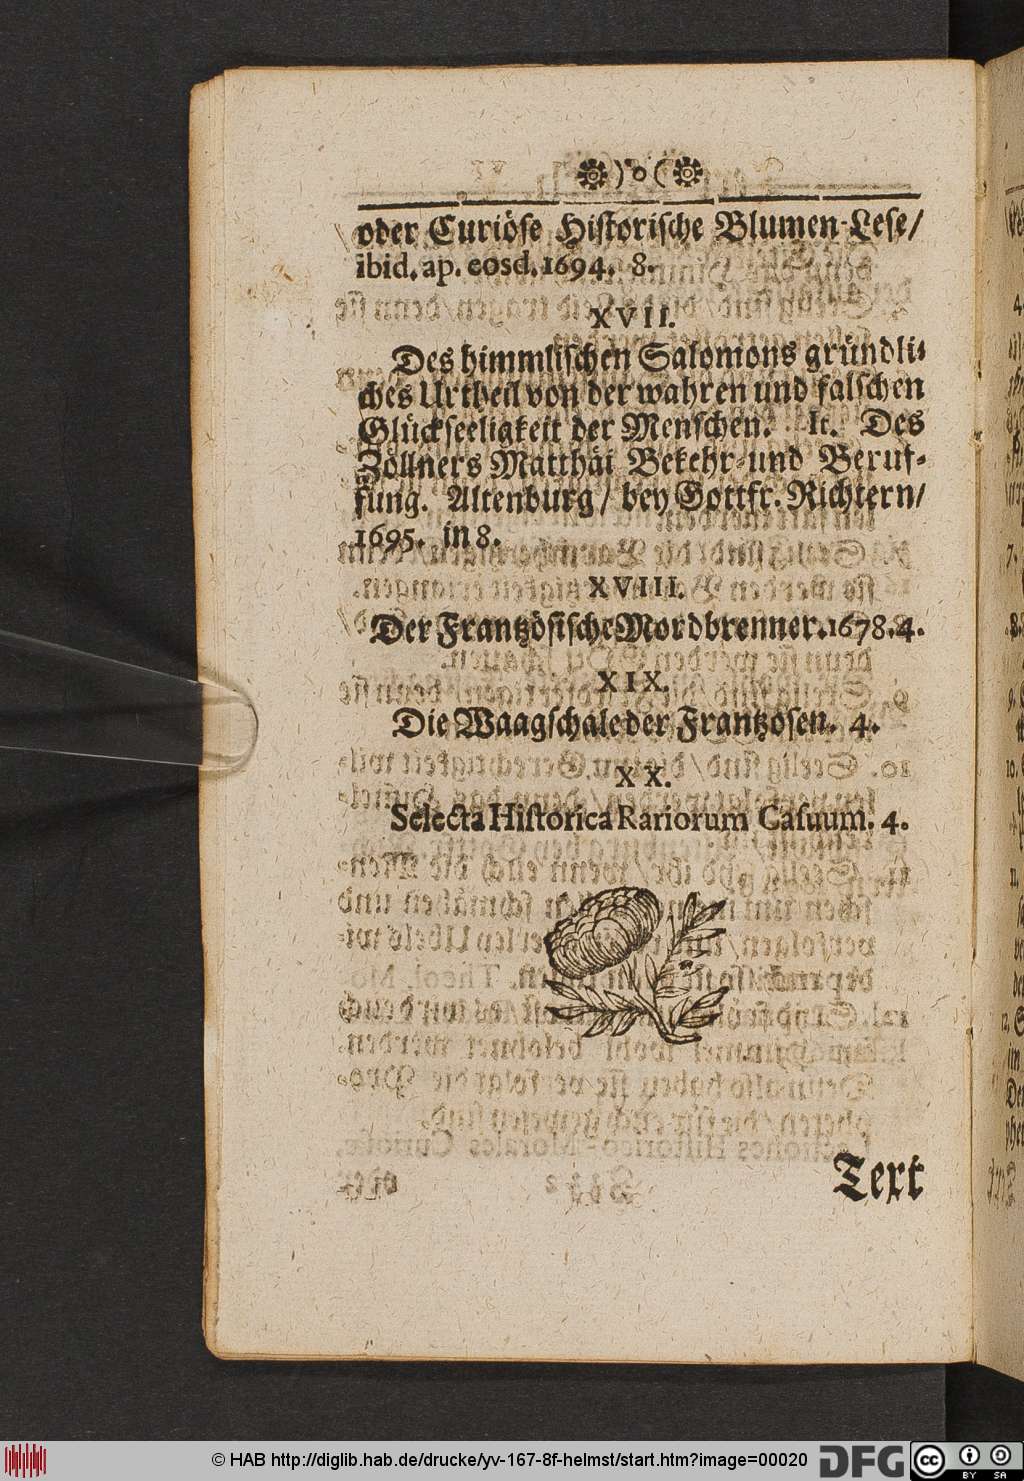 )o(
oder Curiöse Historische Blumen-Lese/
ibid. ap. eosd. 1694. 8.
XVII.
Des himmlischen Salomons gründli-
ches Urtheil von der wahren und falschen
Glückseeligkeit der Menschen. It. Des
Zöllners Matthäi Bekehr- und Beruf-
fung. Altenburg/ bey Gottfr. Richtern/
1695. in 8.
XVIII.
Der Frantzösische Mordbrenner. 1678. 4.
XIX.
Die Waagschale der Frantzosen. 4.
XX.
Selecta Historica Rariorum Casuum. 4.
Text
© HAB http://diglib.hab.de/drucke/yv-167-8f-helmst/start.htm?image=00020
DFG
cc
BY
SA